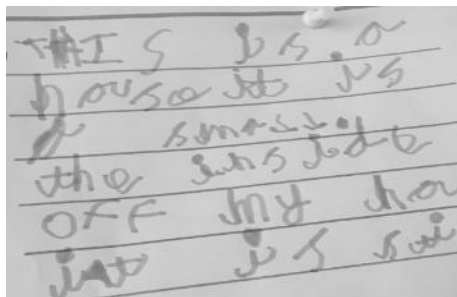 THIS is a
house it is
the inside
OFF my ho
int is